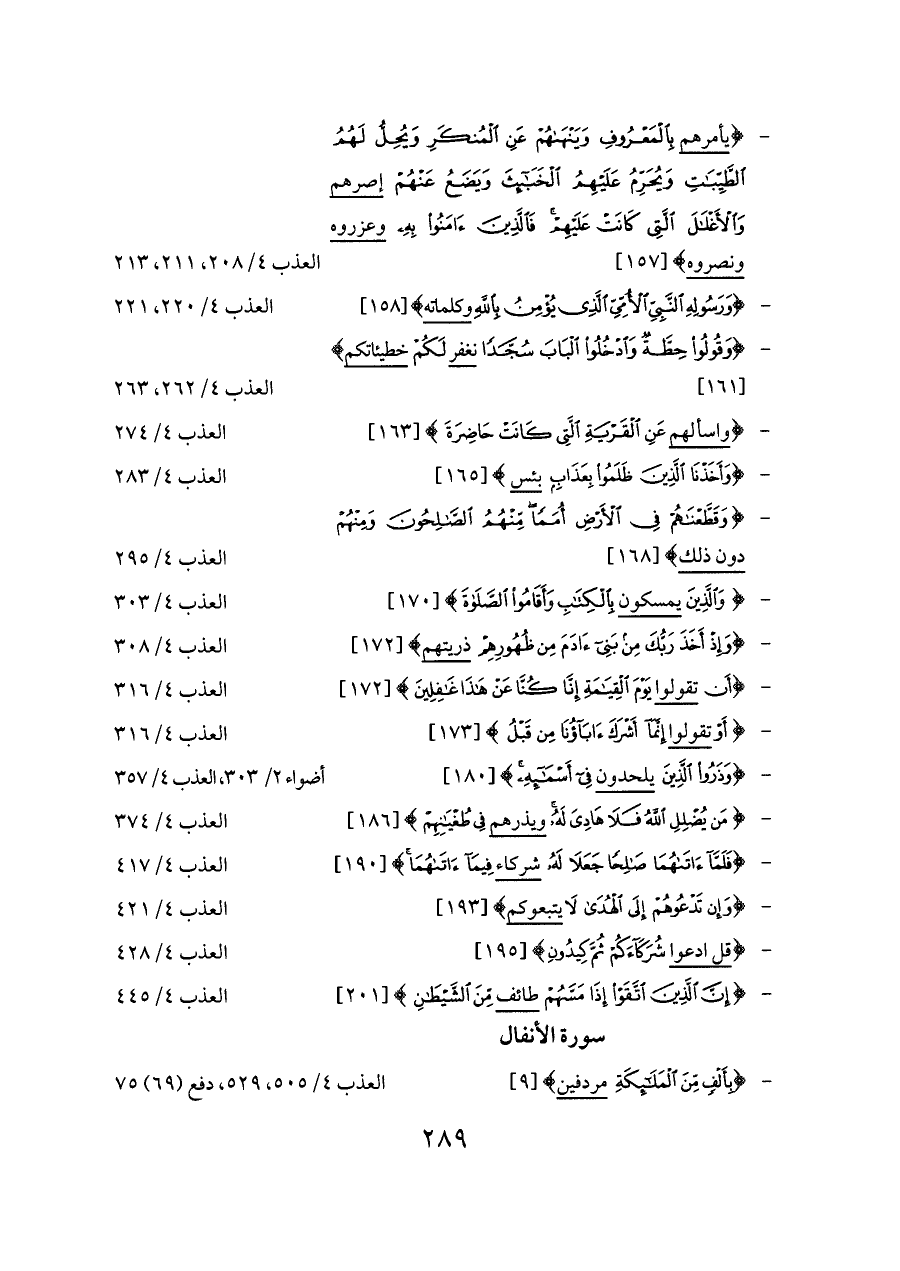 - ﴿يأمرهم بِٱلْمَعْرُوفِ وَيَنْهَىٰهُمْ عَنِ ٱلْمُنكَرِ وَيُحِلُّ لَهُمُ
ٱلطَّيِّبَٰتِ وَيُحَرِّمُ عَلَيْهِمُ ٱلْخَبَٰٓئِثَ وَيَضَعُ عَنْهُمْ إصرهم
وَٱلْأَغْلَٰلَ ٱلَّتِى كَانَتْ عَلَيْهِمْۚ فَٱلَّذِينَ ءَامَنُوا۟ بِهِۦ وعزروه
ونصروه﴾ [١٥٧] العذب ٤/ ٢٠٨، ٢١١، ٢١٣
- ﴿وَرَسُولِهِ ٱلنَّبِىِّ ٱلْأُمِّىِّ ٱلَّذِى يُؤْمِنُ بِٱللَّهِ وكلماته﴾ [١٥٨] العذب ٤/ ٢٢٠، ٢٢١
- ﴿وَقُولُوا۟ حِطَّةٌ وَٱدْخُلُوا۟ ٱلْبَابَ سُجَّدًا نغفر لَكُمْ خطيئاتكم﴾
[١٦١] العذب ٤/ ٢٦٢، ٢٦٣
- ﴿واسألهم عَنِ ٱلْقَرْيَةِ ٱلَّتِى كَانَتْ حَاضِرَةَ ﴾ [١٦٣] العذب ٤/ ٢٧٤
- ﴿وَأَخَذْنَا ٱلَّذِينَ ظَلَمُوا۟ بِعَذَابٍ بئس ﴾ [١٦٥] العذب ٤/ ٢٨٣
- ﴿وَقَطَّعْنَٰهُمْ فِى ٱلْأَرْضِ أُمَمًاۖ مِّنْهُمُ ٱلصَّٰلِحُونَ وَمِنْهُمْ
دون ذلك﴾ [١٦٨] العذب ٤/ ٢٩٥
- ﴿ وَٱلَّذِينَ يمسكون بِٱلْكِتَٰبِ وَأَقَامُوا۟ ٱلصَّلَوٰةَ ﴾ [١٧٠] العذب ٤/ ٣٠٣
- ﴿وَإِذْ أَخَذَ رَبُّكَ مِنۢ بَنِىٓ ءَادَمَ مِن ظُهُورِهِمْ ذريتهم﴾ [١٧٢] العذب ٤/ ٣٠٨
- ﴿أَن تقولوا يَوْمَ ٱلْقِيَٰمَةِ إِنَّا كُنَّا عَنْ هَٰذَا غَٰفِلِينَ ﴾ [١٧٢] العذب ٤/ ٣١٦
- ﴿ أَوْ تقولوا إِنَّمَآ أَشْرَكَ ءَابَآؤُنَا مِن قَبْلُ ﴾ [١٧٣] العذب ٤/ ٣١٦
- ﴿وَذَرُوا۟ ٱلَّذِينَ يلحدون فِىٓ أَسْمَٰٓئِهِۦۚ ﴾ [١٨٠] أضواء ٢/ ٣٠٣، العذب ٤/ ٣٥٧
- ﴿ مَن يُضْلِلِ ٱللَّهُ فَلَا هَادِىَ لَهُۥۚ ويذرهم فِى طُغْيَٰنِهِمْ ﴾ [١٨٦] العذب ٤/ ٣٧٤
- ﴿فَلَمَّآ ءَاتَىٰهُمَا صَٰلِحًا جَعَلَا لَهُۥ شركاء فِيمَآ ءَاتَىٰهُمَاۚ﴾ [١٩٠] العذب ٤/ ٤١٧
- ﴿وَإِن تَدْعُوهُمْ إِلَى ٱلْهُدَىٰ لَا يتبعوكم﴾ [١٩٣] العذب ٤/ ٤٢١
- ﴿قل ادعوا شُرَكَآءَكُمْ ثُمَّ كِيدُونِ﴾ [١٩٥] العذب ٤/ ٤٢٨
- ﴿إِنَّ ٱلَّذِينَ ٱتَّقَوْا۟ إِذَا مَسَّهُمْ طائف مِّنَ ٱلشَّيْطَٰنِ ﴾ [٢٠١] العذب ٤/ ٤٤٥
سورة الأنفال
- ﴿بِأَلْفٍ مِّنَ ٱلْمَلَٰٓئِكَةِ مردفين﴾ [٩] العذب ٤/ ٥٠٥، ٥٢٩، دفع (٦٩) ٧٥
٢٨٩